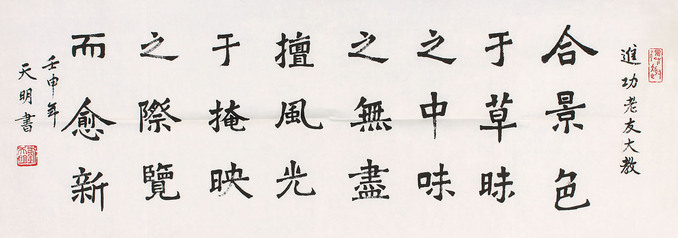 進功老友大教
合景色
于草昧
之中味
之無盡
擅風光
于掩映
之際覽
而愈新
壬申年
天明書